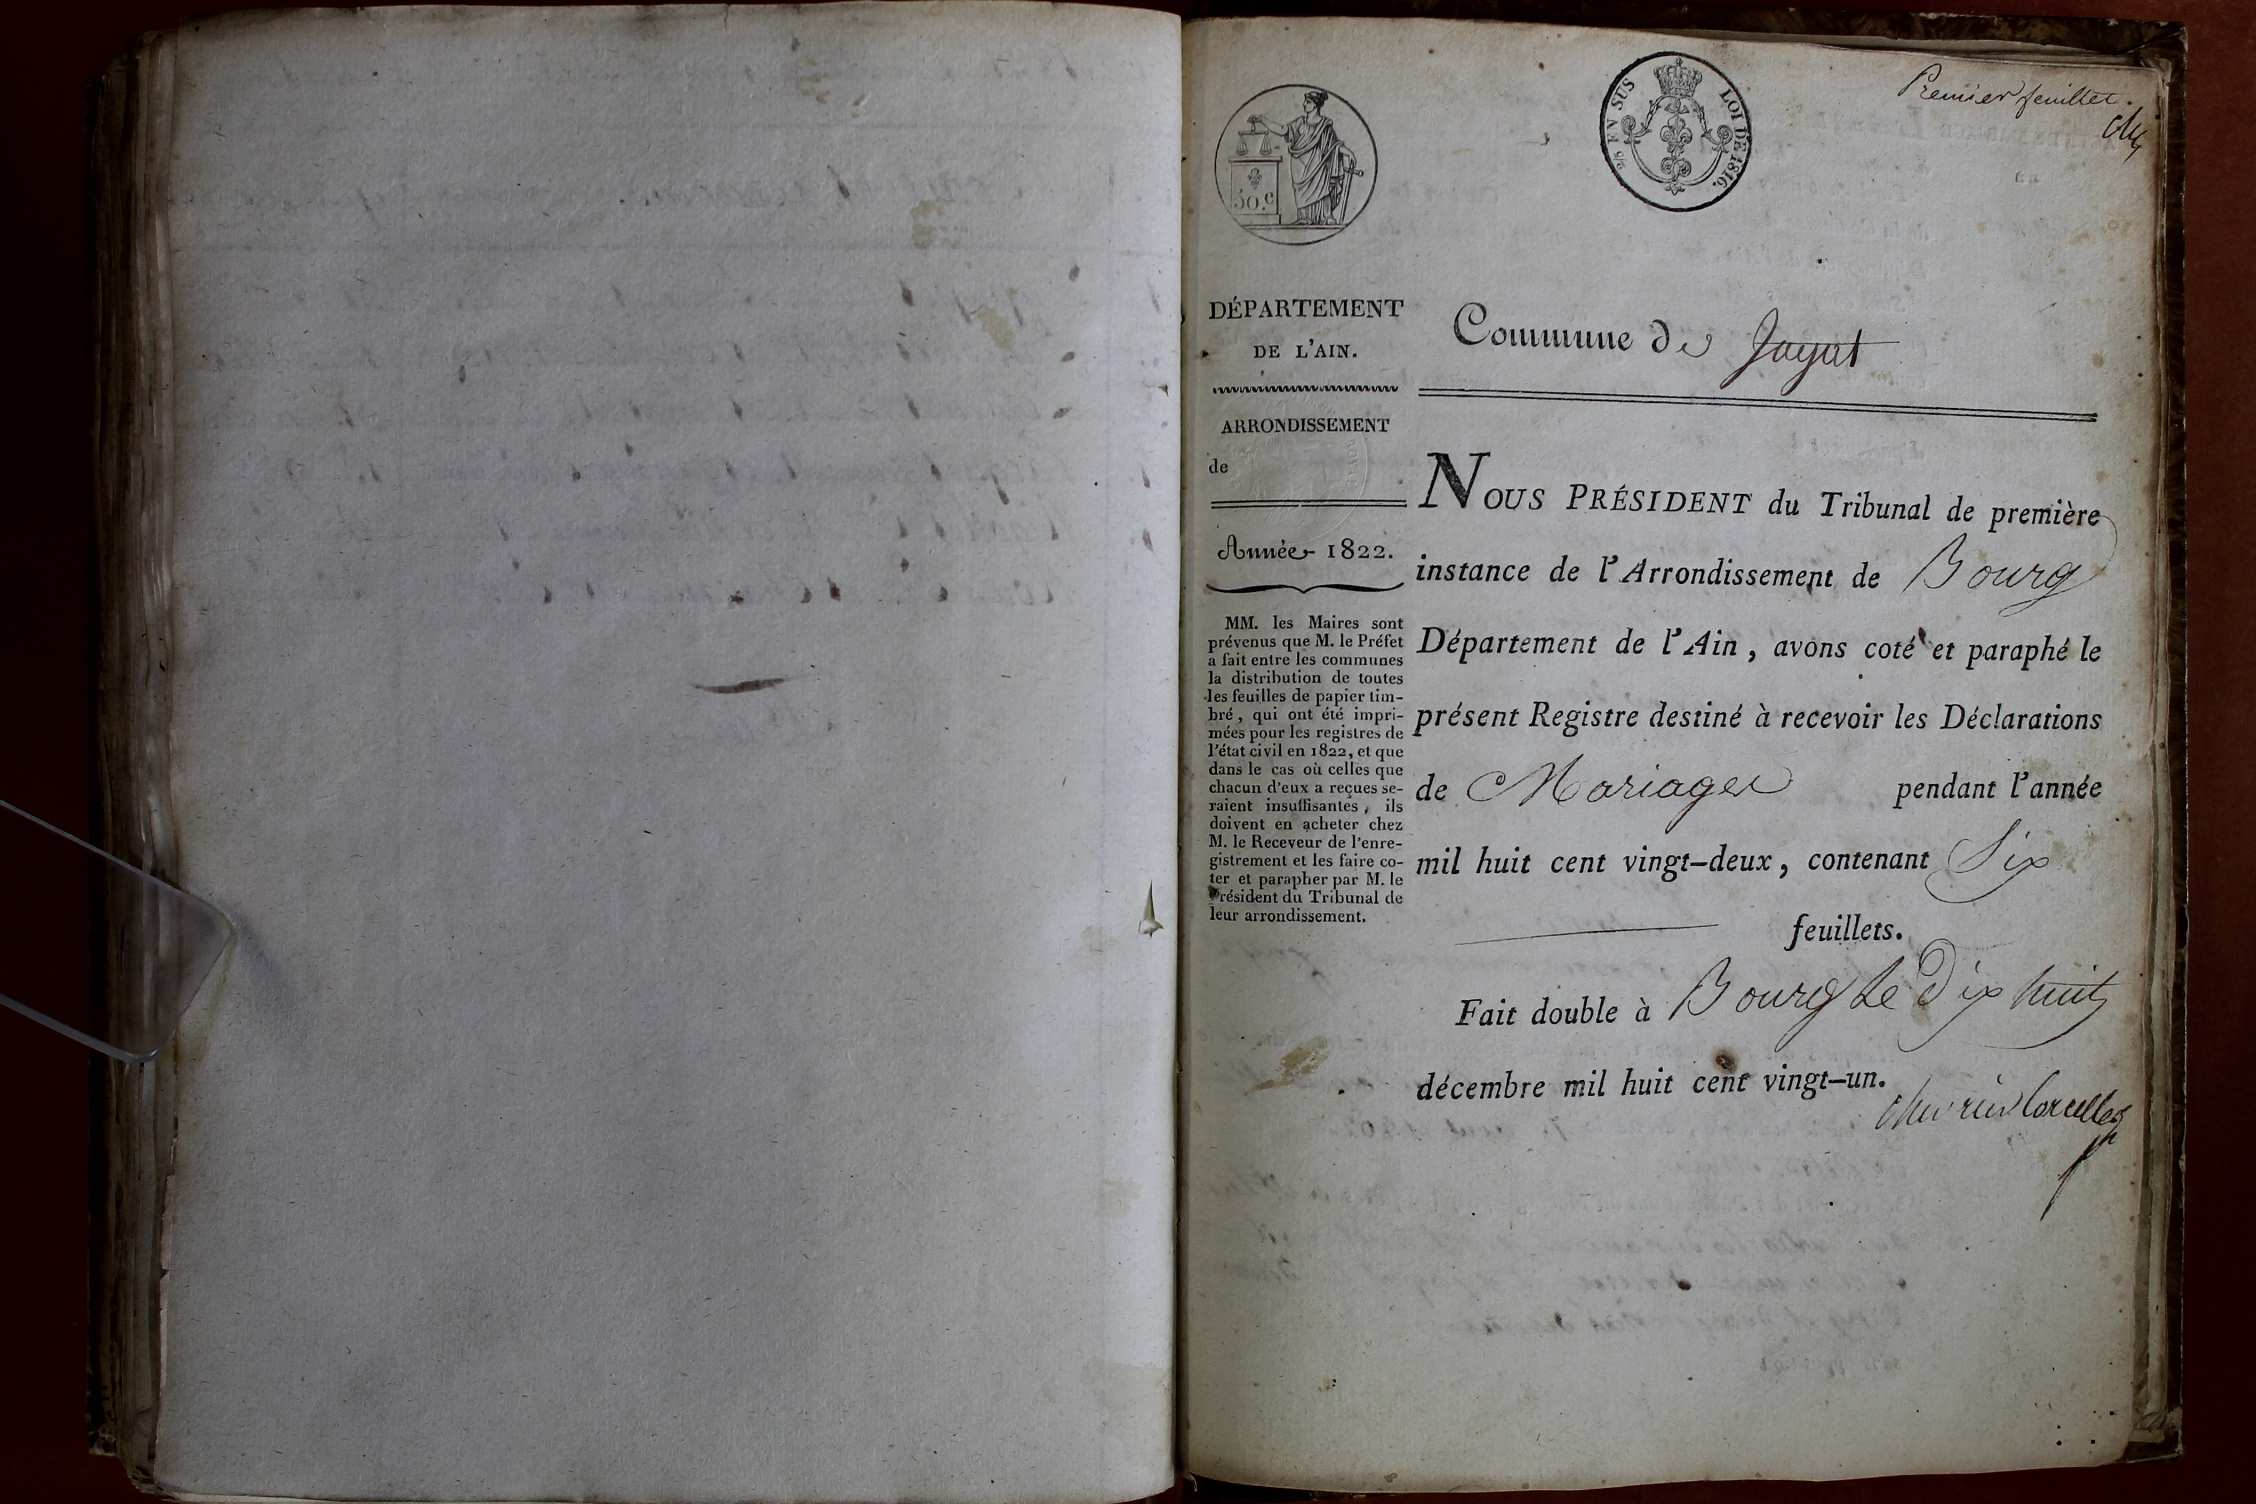 Premier feuillet.
2/5 EN SUS LOI DE 1816.
50.c
DÉPARTEMENT
DE L'AIN.
ARRONDISSEMENT
de
Année 1822.
MM. les Maires sont
prévenus que M. le Préfet
a fait entre les communes
la distribution de toutes
les feuilles de papier tim-
bré, qui ont été impri-
mées pour les registres de
l'état civil en 1822, et que
dans le cas où celles que
chacun d'eux a reçues se-
raient insuffisantes, ils
doivent en acheter chez
M. le Receveur de l'enre-
gistrement et les faire co-
ter et parapher par M. le
Président du Tribunal de
leur arrondissement.
Commune de Jayat
NOUS PRÉSIDENT du Tribunal de première
instance de l'Arrondissement de Bourg
Département de l'Ain, avons coté et paraphé le
présent Registre destiné à recevoir les Déclarations
de Mariages pendant l'année
mil huit cent vingt-deux, contenant Six
feuillets.
Fait double à Bourg le Dix huit
décembre mil huit cent vingt-un.